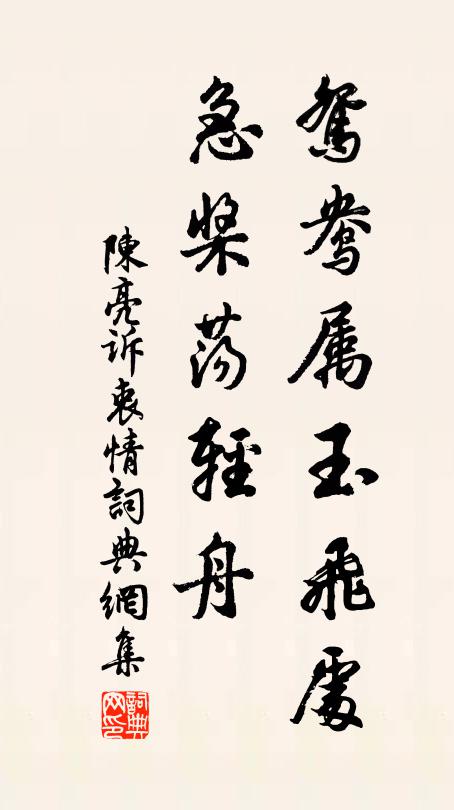 鴛鴦属玉飛處
急槳蕩輕舟
陳亮訴衷情詞典網集
詞典网印